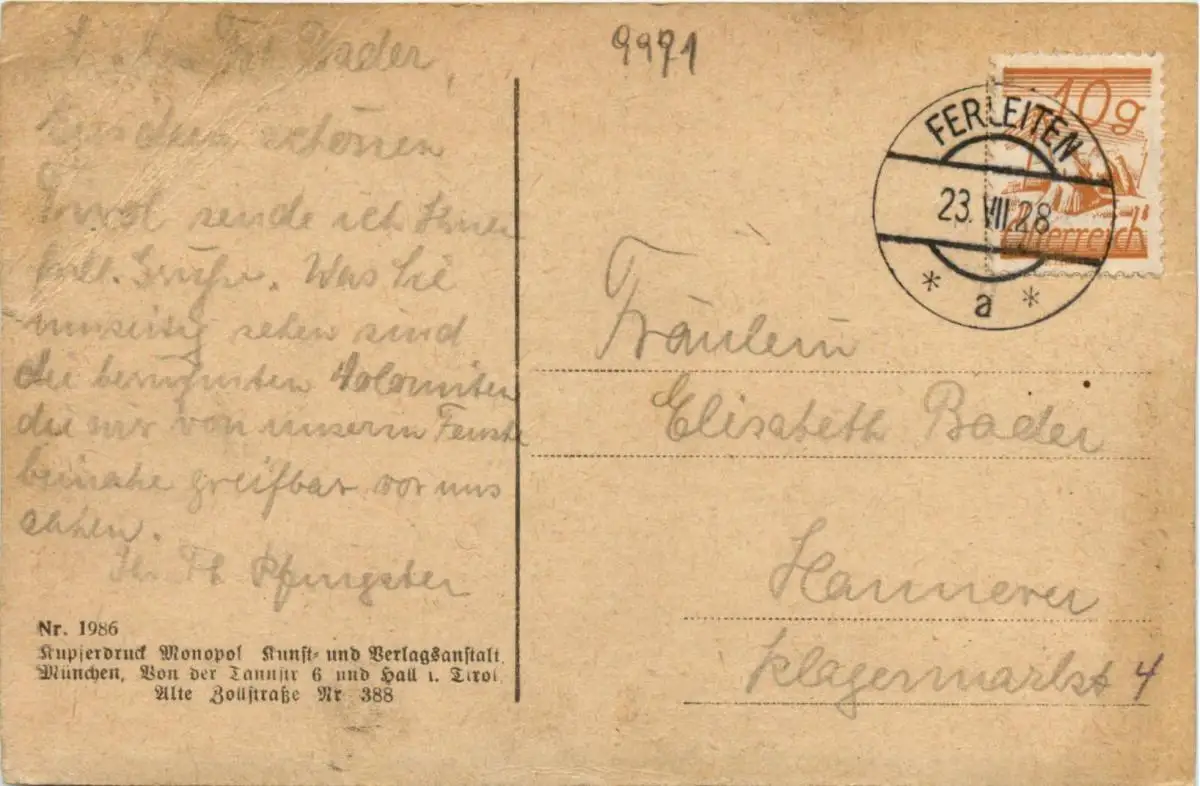 Frl. Bader,
Aus dem schönen
Tirol sende ich Ihnen
herzl. Grüße. Was Sie
umseitig sehen sind
die berühmten Dolomiten
die wir von unserm Fenster
beinahe greifbar vor uns
sahen.
Ihr Pfingsten
Nr. 1986
Kupferdruck Monopol Kunst- und Verlagsanstalt
München, Von der Tannstr 6 und Hall i. Tirol
Alte Zollstraße Nr 388
9991
10g
Österreich
FERLEITEN
23.VII.28
* a *
Fräulein
Elisabeth Bader
Hannover
Klagesmarkt 4